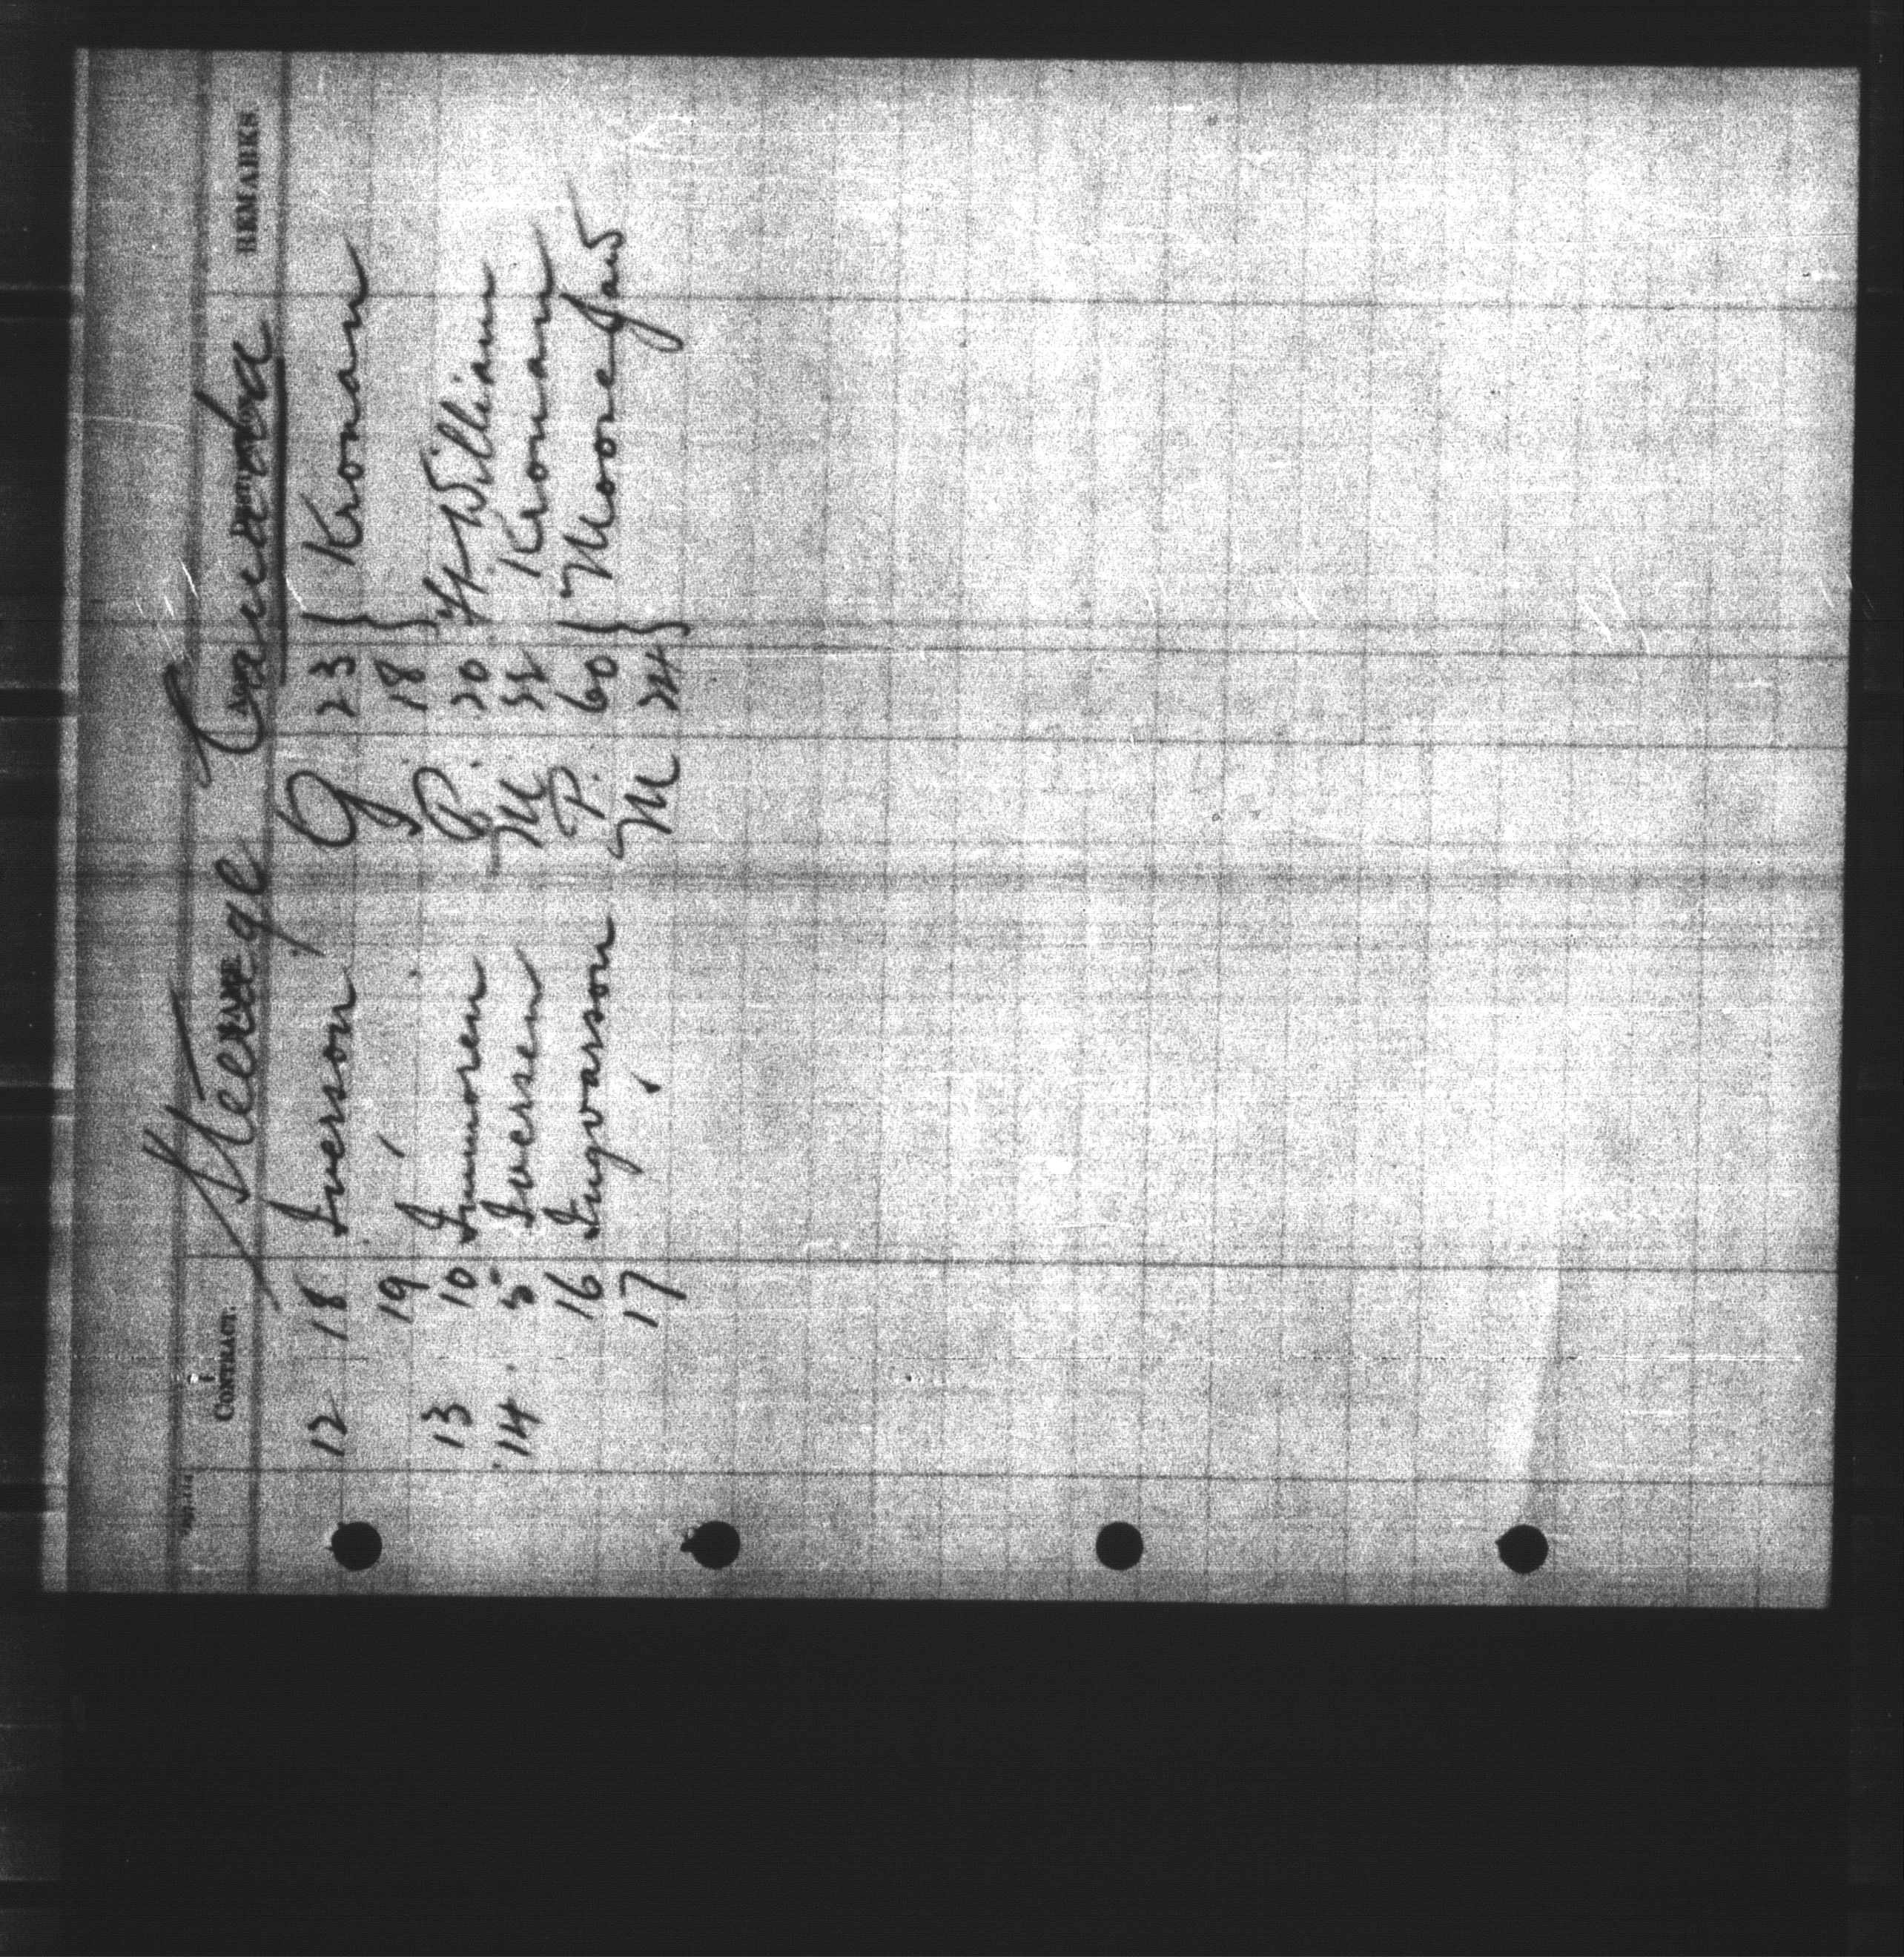 CONTRACT. REMARKS
Steerage Canada
12 18 Iverson G 23 } Kronan
19 I 18 }
13 10 Immoren P. 20 Ft William
14 5 Iversen M. 52 Kronan
16 Ingvarsson P. 60 } Moose Jaw
17 M 24 }